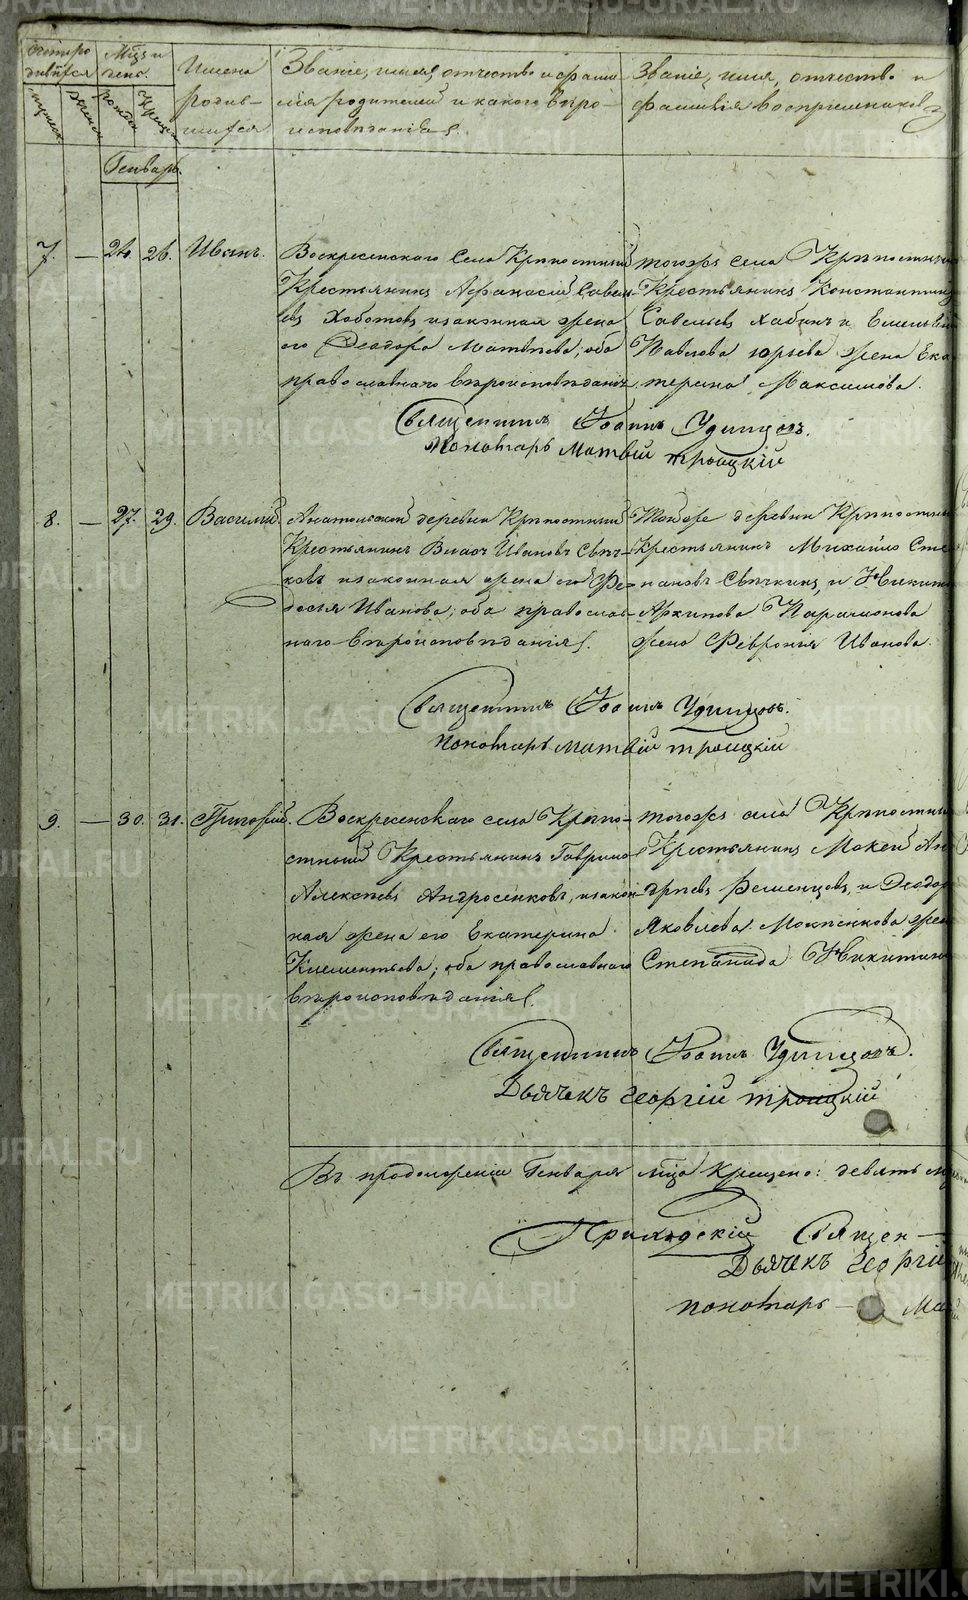 Имена
родив-
шихся
Званіе, имя, отчество и фами-
лія родителей и какого веро-
исповеданія.
Званіе, имя, отчество и
фамилія воспріемниковъ
Генварь.
7. — 24. 26. Иванъ.
Воскресенскаго села Крѣпостный
Крестьянинъ Афанасій Савель-
евъ Хабаровъ и законная жена
его Феодора Матвѣева, оба
православнаго вѣроисповѣданія
тогожъ села Крѣпостный
Крестьянинъ Константинъ
Савельевъ и Емельяна
Павлова Юрьева жена Ека-
терина Максимова.
Священникъ Іоаннъ Удинцовъ.
Пономарь Матвій Троицкій
8. — 27. 29. Василій.
деревни Крѣпостный
Крестьянинъ Власъ Ивановъ Свѣч-
ковъ и законная жена его Фе-
досья Иванова, оба православ-
наго вѣроисповѣданія.
Тойже деревни Крѣпостный
крестьянинъ Михайло Сте-
пановъ Свѣчкинъ, и Никиты
Архипова
жена Февронія Иванова.
Священникъ Іоаннъ Удинцовъ.
пономарь матвій троицкій
9. — 30. 31. Григорій.
Воскресенскаго села Крѣпо-
стный Крестьянинъ Гаврило
Алексѣевъ Андросенковъ, и закон-
ная жена его Екатерина
Клементьева, оба православнаго
вѣроисповѣданія.
тогожъ села Крѣпостный
Крестьянинъ Мокей Ан-
дрѣевъ и Феодора
Яковлева Мокѣенкова жена
Степанида Никитина
Священникъ Іоаннъ Удинцовъ.
Дьячекъ георгій троицкій
Въ продолженіи Генваря мца Крещено: девять
Приходскій Священ-
Дьячекъ Георгій
пономарь — Ма
METRIKI.GASO-URAL.RU